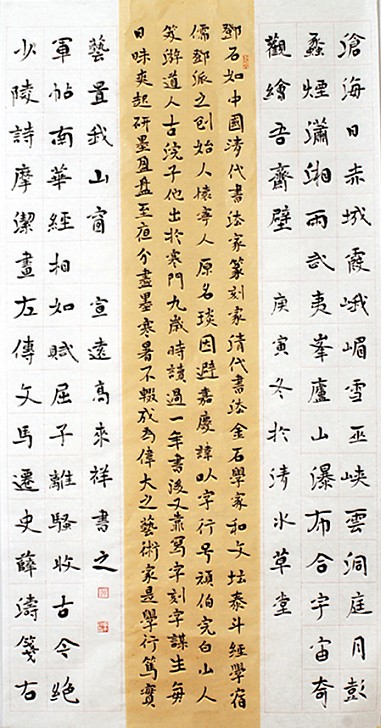 滄海日赤城霞峨嵋雪巫峽雲洞庭月彭
蠡煙瀟湘雨武夷峯廬山瀑布合宇宙奇
觀繪吾齋壁 庚寅冬於清水草堂
鄧石如中国清代書法家篆刻家清代書法金石學家和文坛泰斗經學宿
儒鄧派之創始人懷寧人原名琰因避嘉慶諱以字行号頑伯完白山人
笈游道人古浣子他出於寒門九歲時讀過一年書後又靠寫字刻字謀生每
日昧爽起研墨盈盘至夜分盡墨寒暑不輟成為偉大之藝術家是學行篤實
少陵詩摩潔畫左傳文馬遷史薛濤箋右
軍帖南華經相如賦屈子離騷收古今絕
藝置我山窗 宣遠高來祥書之